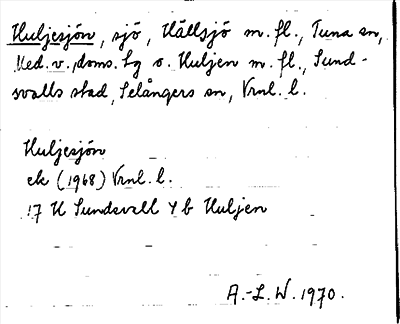 Huljesjön, sjö, Hällsjö m. fl., Tuna sn,
Med. v. doms. hg o. Huljen m. fl., Sund-
svalls stad, Selångers sn, Vrnl. l.
Huljesjön
ek (1968) Vrnl. l.
17 H Sundsvall 4 b Huljen
A.-L. W. 1970.